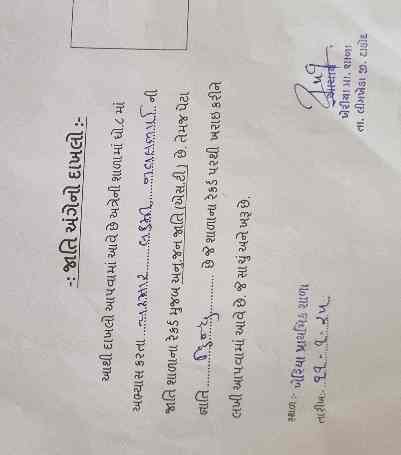 -: જાતિ અંગેનો દાખલો :-
આથી દાખલો આપવામાં આવે છે અત્રેની શાળામાં ધો.૮ માં
અભ્યાસ કરતા ની
જાતિ શાળાના રેકર્ડ મુજબ અનુ.જન જાતિ (એસ.ટી) છે. તેમજ પેટા
જાતિ હિન્દુ છે જે શાળાના રેકર્ડ પરથી ખરાઇ કરીને
લખી આપવામાં આવે છે. જે સાચું અને ખરૂ છે.
સ્થળ:- પ્રાથમિક શાળા
તારીખ:-
આચાર્ય
પ્રા. શાળા
તા. લીમખેડા જી. દાહોદ